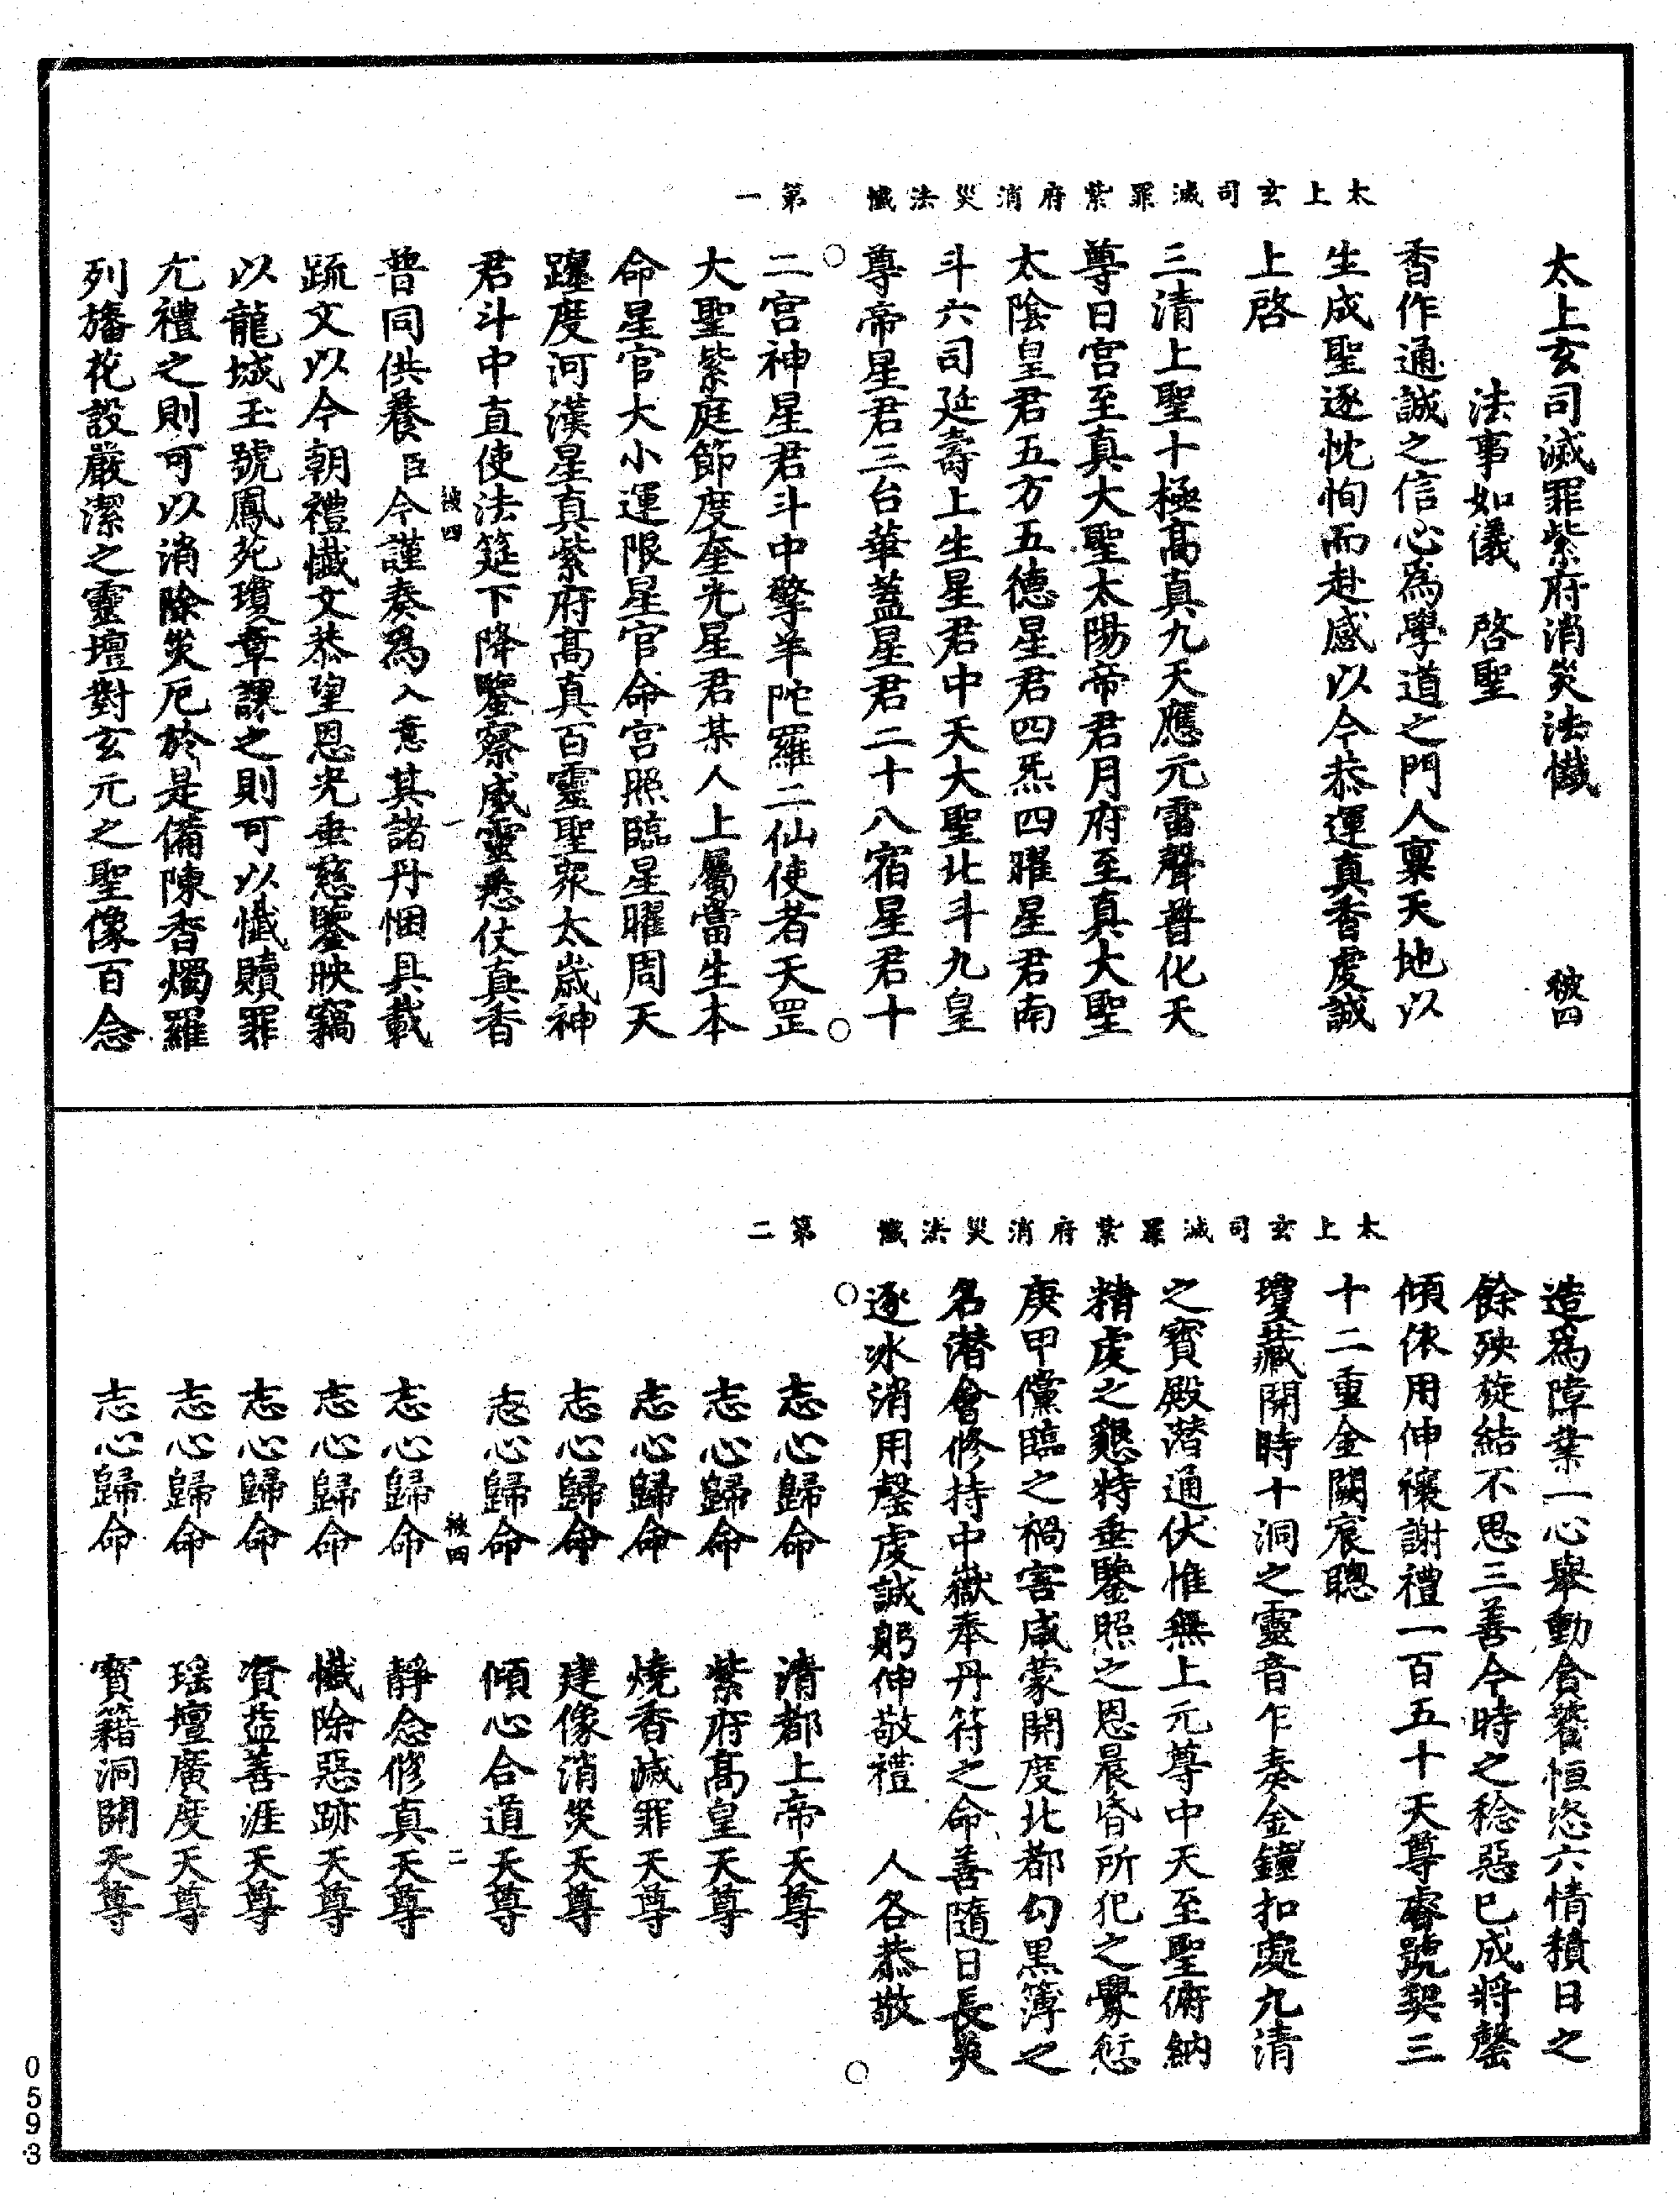 太上玄司滅罪紫府消災法懺　第一
太上玄司滅罪紫府消災法懺　彼四
法事如儀　啓聖
香作通誠之信心為學道之門人稟天地以
生成聖逐忱恂而赴感以今恭運真香虔誠
上啓
三清上聖十極高真九天應元雷聲普化天
尊日宮至真大聖太陽帝君月府至真大聖
太陰皇君五方五德星君四炁四曜星君南
斗六司延壽上生星君中天大聖北斗九皇
尊帝星君三台華蓋星君二十八宿星君十
二宮神星君斗中擎羊陀羅二仙使者天罡
大聖紫庭節度奎光星君某人上屬當生本
命星官大小運限星官命宮照臨星曜周天
躔度河漢星真紫府高真百靈聖眾太歲神
君斗中直使法筵下降鑒察威靈悉仗真香
彼四　一
普同供養臣今謹奏爲入意其諸丹悃具載
疏文以今朝禮懺文恭望恩光垂慈鑒映竊
以龍城玉號鳳苑瓊章課之則可以懺贖罪
尤禮之則可以消除災厄於是備陳香燭羅
列旛花設嚴潔之靈壇對玄元之聖像百念
太上玄司滅罪紫府消災法懺　第二
造爲障業一心舉動貪饕恒恣六情積日之
餘殃旋結不思三善今時之稔惡已成將罄
傾依用伸禳謝禮一百五十天尊睿號契三
十二重金闕宸聰
瓊藏開時十洞之靈音乍奏金鐘扣處九清
之寶殿潛通伏惟無上元尊中天至聖俯納
精虔之懇特垂鑒照之恩晨昏所犯之釁愆
庚甲儻臨之禍害咸蒙開度北都勾黑簿之
名潛會修持中嶽奉丹符之命善隨日長災
逐冰消用罄虔誠躬伸敬禮　人各恭敬
志心歸命　清都上帝天尊
志心歸命　紫府高皇天尊
志心歸命　燒香滅罪天尊
志心歸命　建像消災天尊
志心歸命　傾心合道天尊
彼四　二
志心歸命　靜念修真天尊
志心歸命　懺除惡跡天尊
志心歸命　資益善涯天尊
志心歸命　瑶壇廣度天尊
志心歸命　寶籍洞開天尊
0593